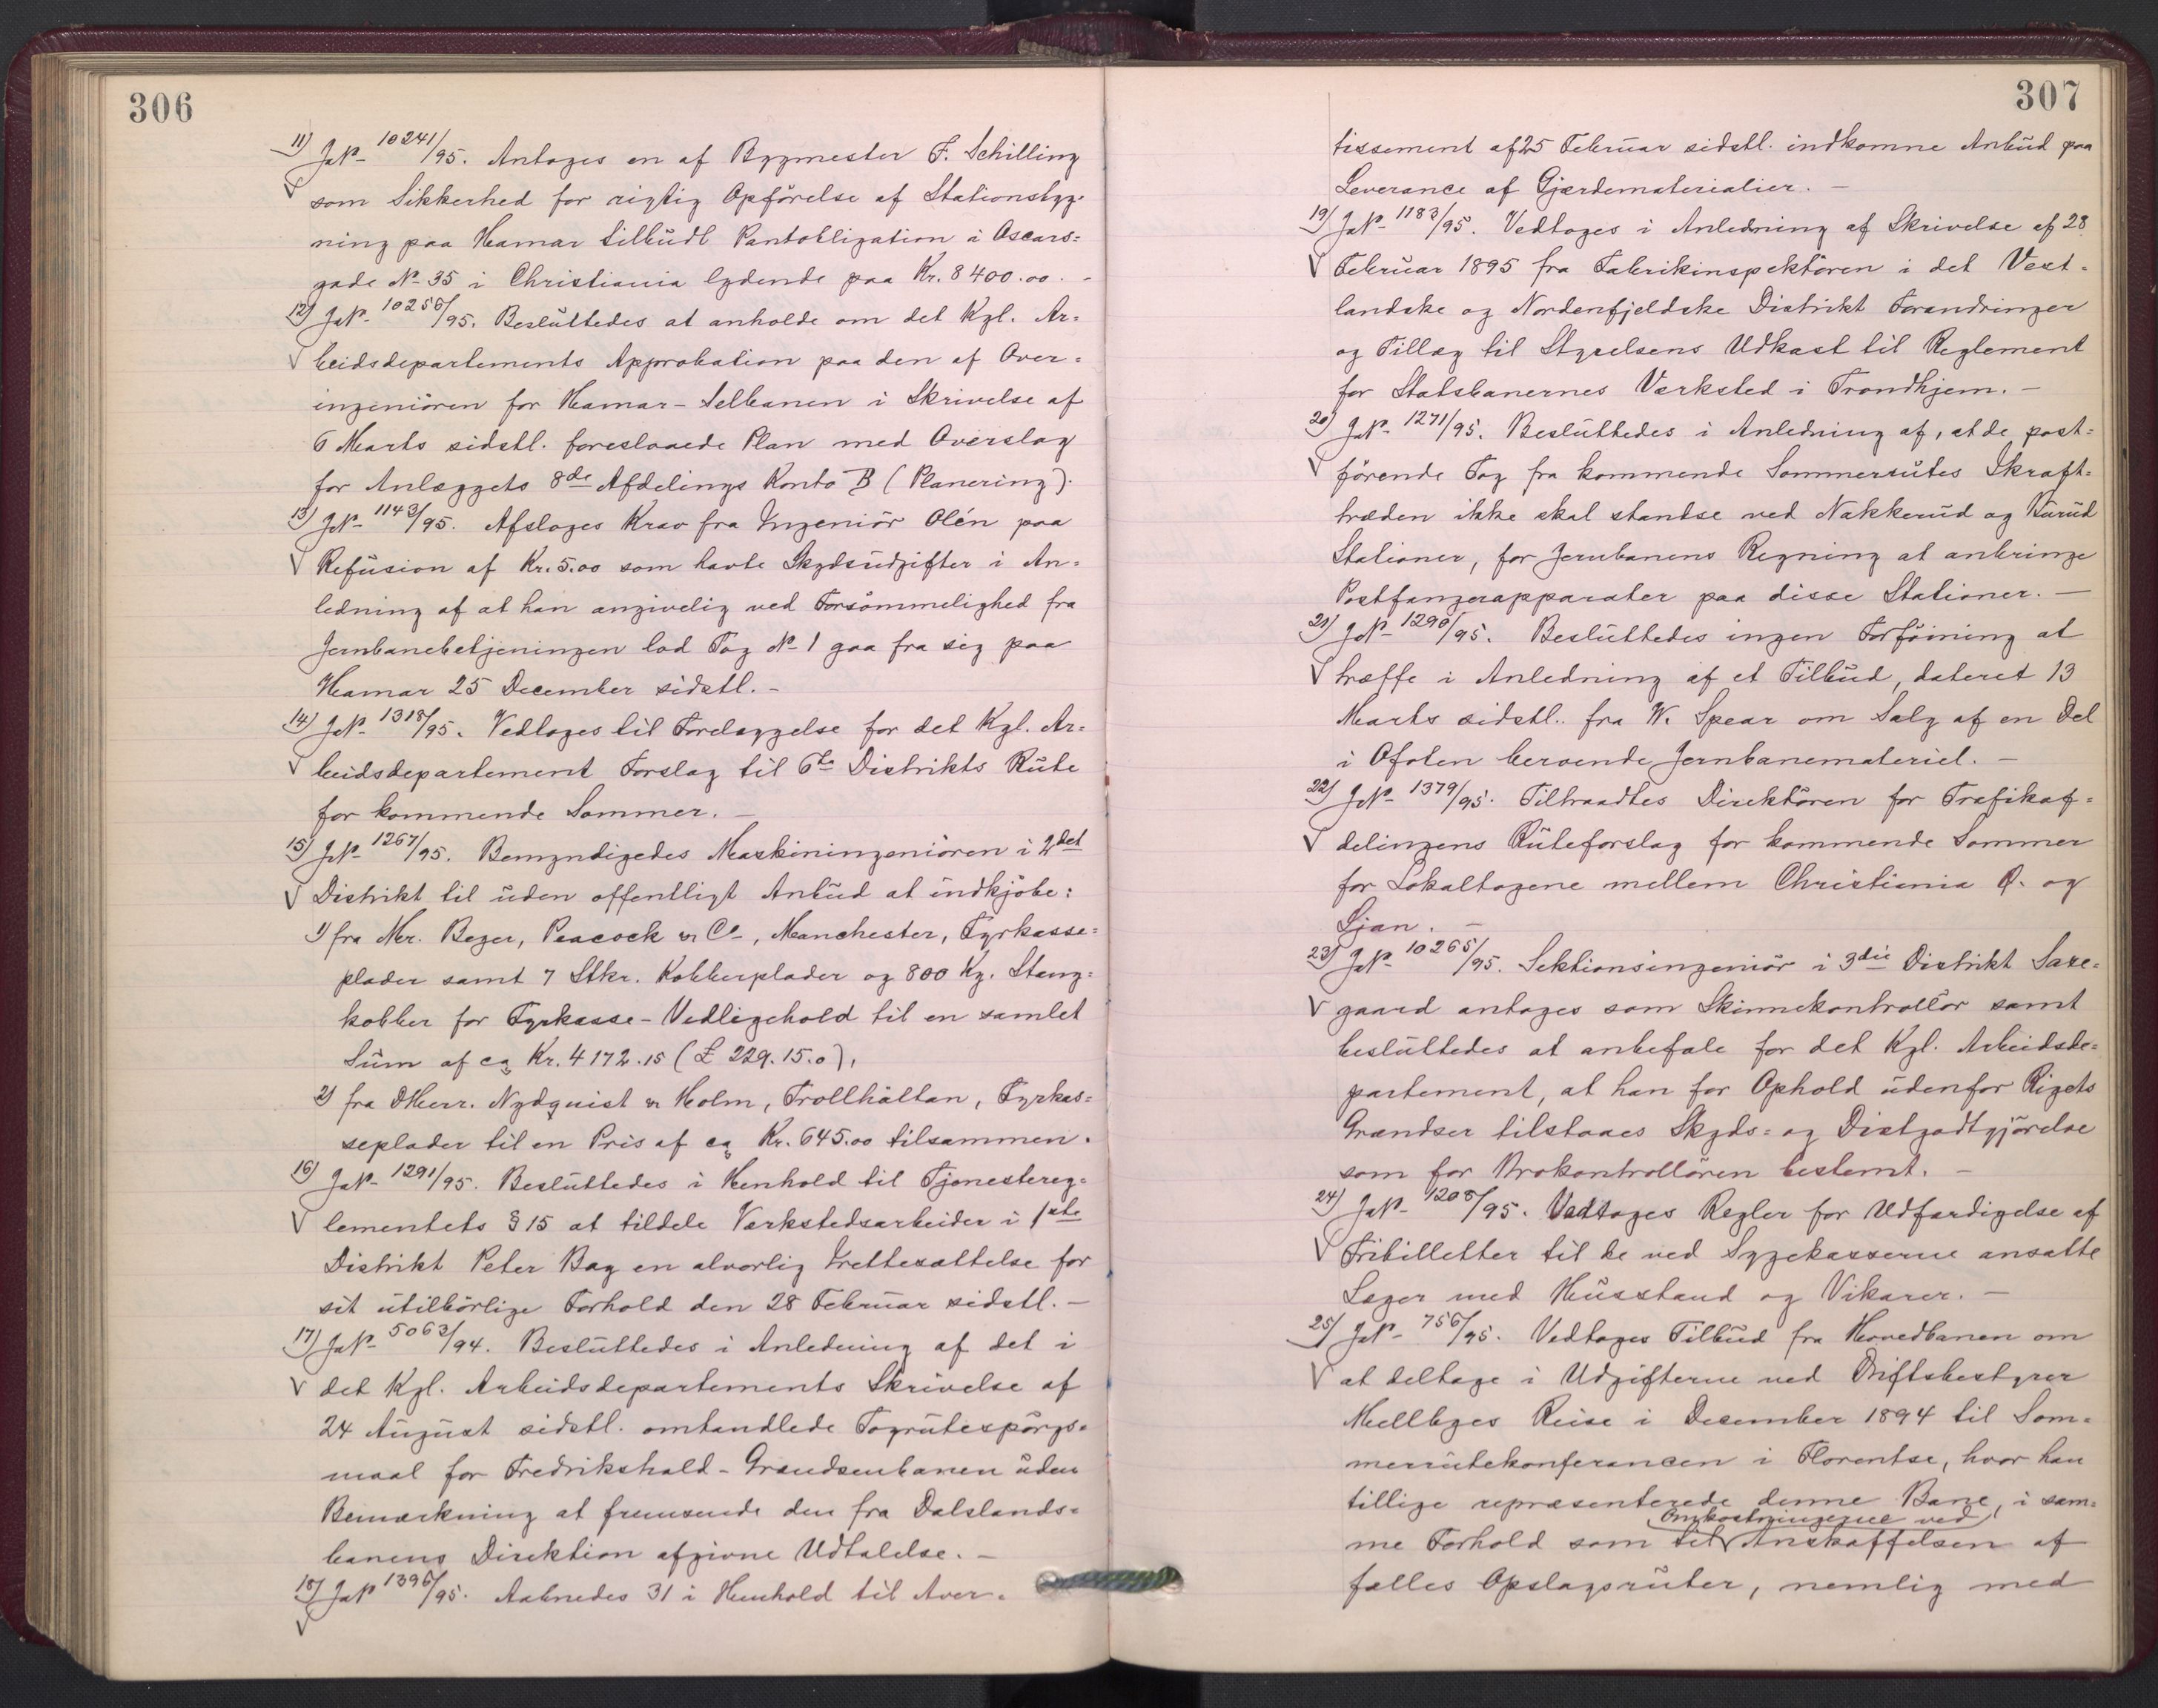 306
11) JNº 10241/95. Antoges en af Bygmester F. Schilling
som Sikkerhed for rigtig Opførelse af Stationsbyg-
ning paa Hamar tilbudt Pantobligation i Oscars=
gade Nº 35 i Christiania lydende paa Kr. 8400.00. -
12) JNº 10256/95. Besluttedes at anholde om det Kgl. Ar=
beidsdepartements Approbation paa den af Over=
ingeniøren for Hamar-Selbanen i Skrivelse af
6 Marts sidstl. foreslaaede Plan med Overslag
for Anlæggets 8de Afdelings Konto B (Planering).
13) JNº 1143/95. Afsloges Krav fra Ingeniør Olén paa
Refusion af Kr. 5.00 som havte Skydsudgifter i An=
ledning af at han angivelig ved Forsømmelighed fra
Jernbanebetjeningen lod Tog Nº 1 gaa fra sig paa
Hamar 25 December sidstl. -
14) JNº 1318/95. Vedtoges til Forelæggelse for det Kgl. Ar=
beidsdepartement Forslag til 6te Distrikts Rute
for kommende Sommer. -
15) JNº 1267/95. Bemyndigedes Maskiningeniøren i 2det
Distrikt til uden offentligt Anbud at indkjøbe:
1) fra Mr. Beyer, Peacock & Co, Manchester, Fyrkasse=
plader samt 7 Stkr. Kobberplader og 800 Kg. Stang=
kobber for Fyrkasse-Vedligehold til en samlet
Sum af ca Kr. 4172.15 (£ 229.15.0),
2) fra DHerr. Nydquist & Holm, Trollhättan, Fyrkas=
seplader til en Pris af ca Kr. 645.00 tilsammen.
16) JNº 1291/95. Besluttedes i Henhold til Tjenestereg=
lementets § 15 at tildele Værkstedsarbeider i 1ste
Distrikt Peter Bay en alvorlig Irettesættelse for
sit utilbørlige Forhold den 28 Februar sidstl. -
17) JNº 5063/94. Besluttedes i Anledning af det i
det Kgl. Arbeidsdepartements Skrivelse af
24 August sidstl. omhandlede Togrutespørgs=
maal for Fredrikshald-Grændsenbanen uden
Bemærkning at fremsende den fra Dalslands=
banens Direktion afgivne Udtalelse. -
18) JNº 1396/95. Aabnedes 31 i Henhold til Aver=
307
tissement af 25 Februar sidstl. indkomne Anbud paa
Leverance af Gjærdematerialier. -
19) JNº 1183/95. Vedtoges i Anledning af Skrivelse af 28
Februar 1895 fra Fabrikinspektøren i det Vest=
landske og Nordenfjeldske Distrikt Forandringer
og Tillæg til Styrelsens Udkast til Reglement
for Statsbanernes Værksted i Trondhjem. -
20) JNº 1271/95. Besluttedes i Anledning af, at de post=
førende Tog fra kommende Sommerrutes Ikraft=
træden ikke skal standse ved Nakkerud og Burud
Stationer, for Jernbanens Regning at anbringe
Postfangerapparater paa disse Stationer. -
21) JNº 1290/95. Besluttedes ingen Forføining at
træffe i Anledning af et Tilbud, dateret 13
Marts sidstl. fra W. Spear om Salg af en Del
i Ofoten beroende Jernbanemateriel. -
22) JNº 1379/95. Tiltraadtes Direktøren for Trafikaf=
delingens Ruteforslag for kommende Sommer
for Lokaltogene mellem Christiania Ø. og
Ljan. -
23) JNº 10265/95. Sektionsingeniør i 3die Distrikt Saxe=
gaard antages som Skinnekontrollør samt
besluttedes at anbefale for det Kgl. Arbeidsde=
partement, at han for Ophold udenfor Rigets
Grændser tilstaaes Skyds= og Diætgodtgjørelse
som for Brokontrolløren bestemt. -
24) JNº 1208/95. Vedtoges Regler for Udfærdigelse af
Fribilletter til de ved Sygekasserne ansatte
Læger med Husstand og Vikarer. -
25) JNº 756/95. Vedtoges Tilbud fra Hovedbanen om
at deltage i Udgifterne ved Driftsbestyrer
Mellbyes Reise i December 1894 til Som=
merrutekonferancen i Florentse, hvor han
tillige repræsenterede denne Bane, i sam=
Omkostningerne ved
me Forhold som til Anskaffelsen af
fælles Opslagsruter, nemlig med